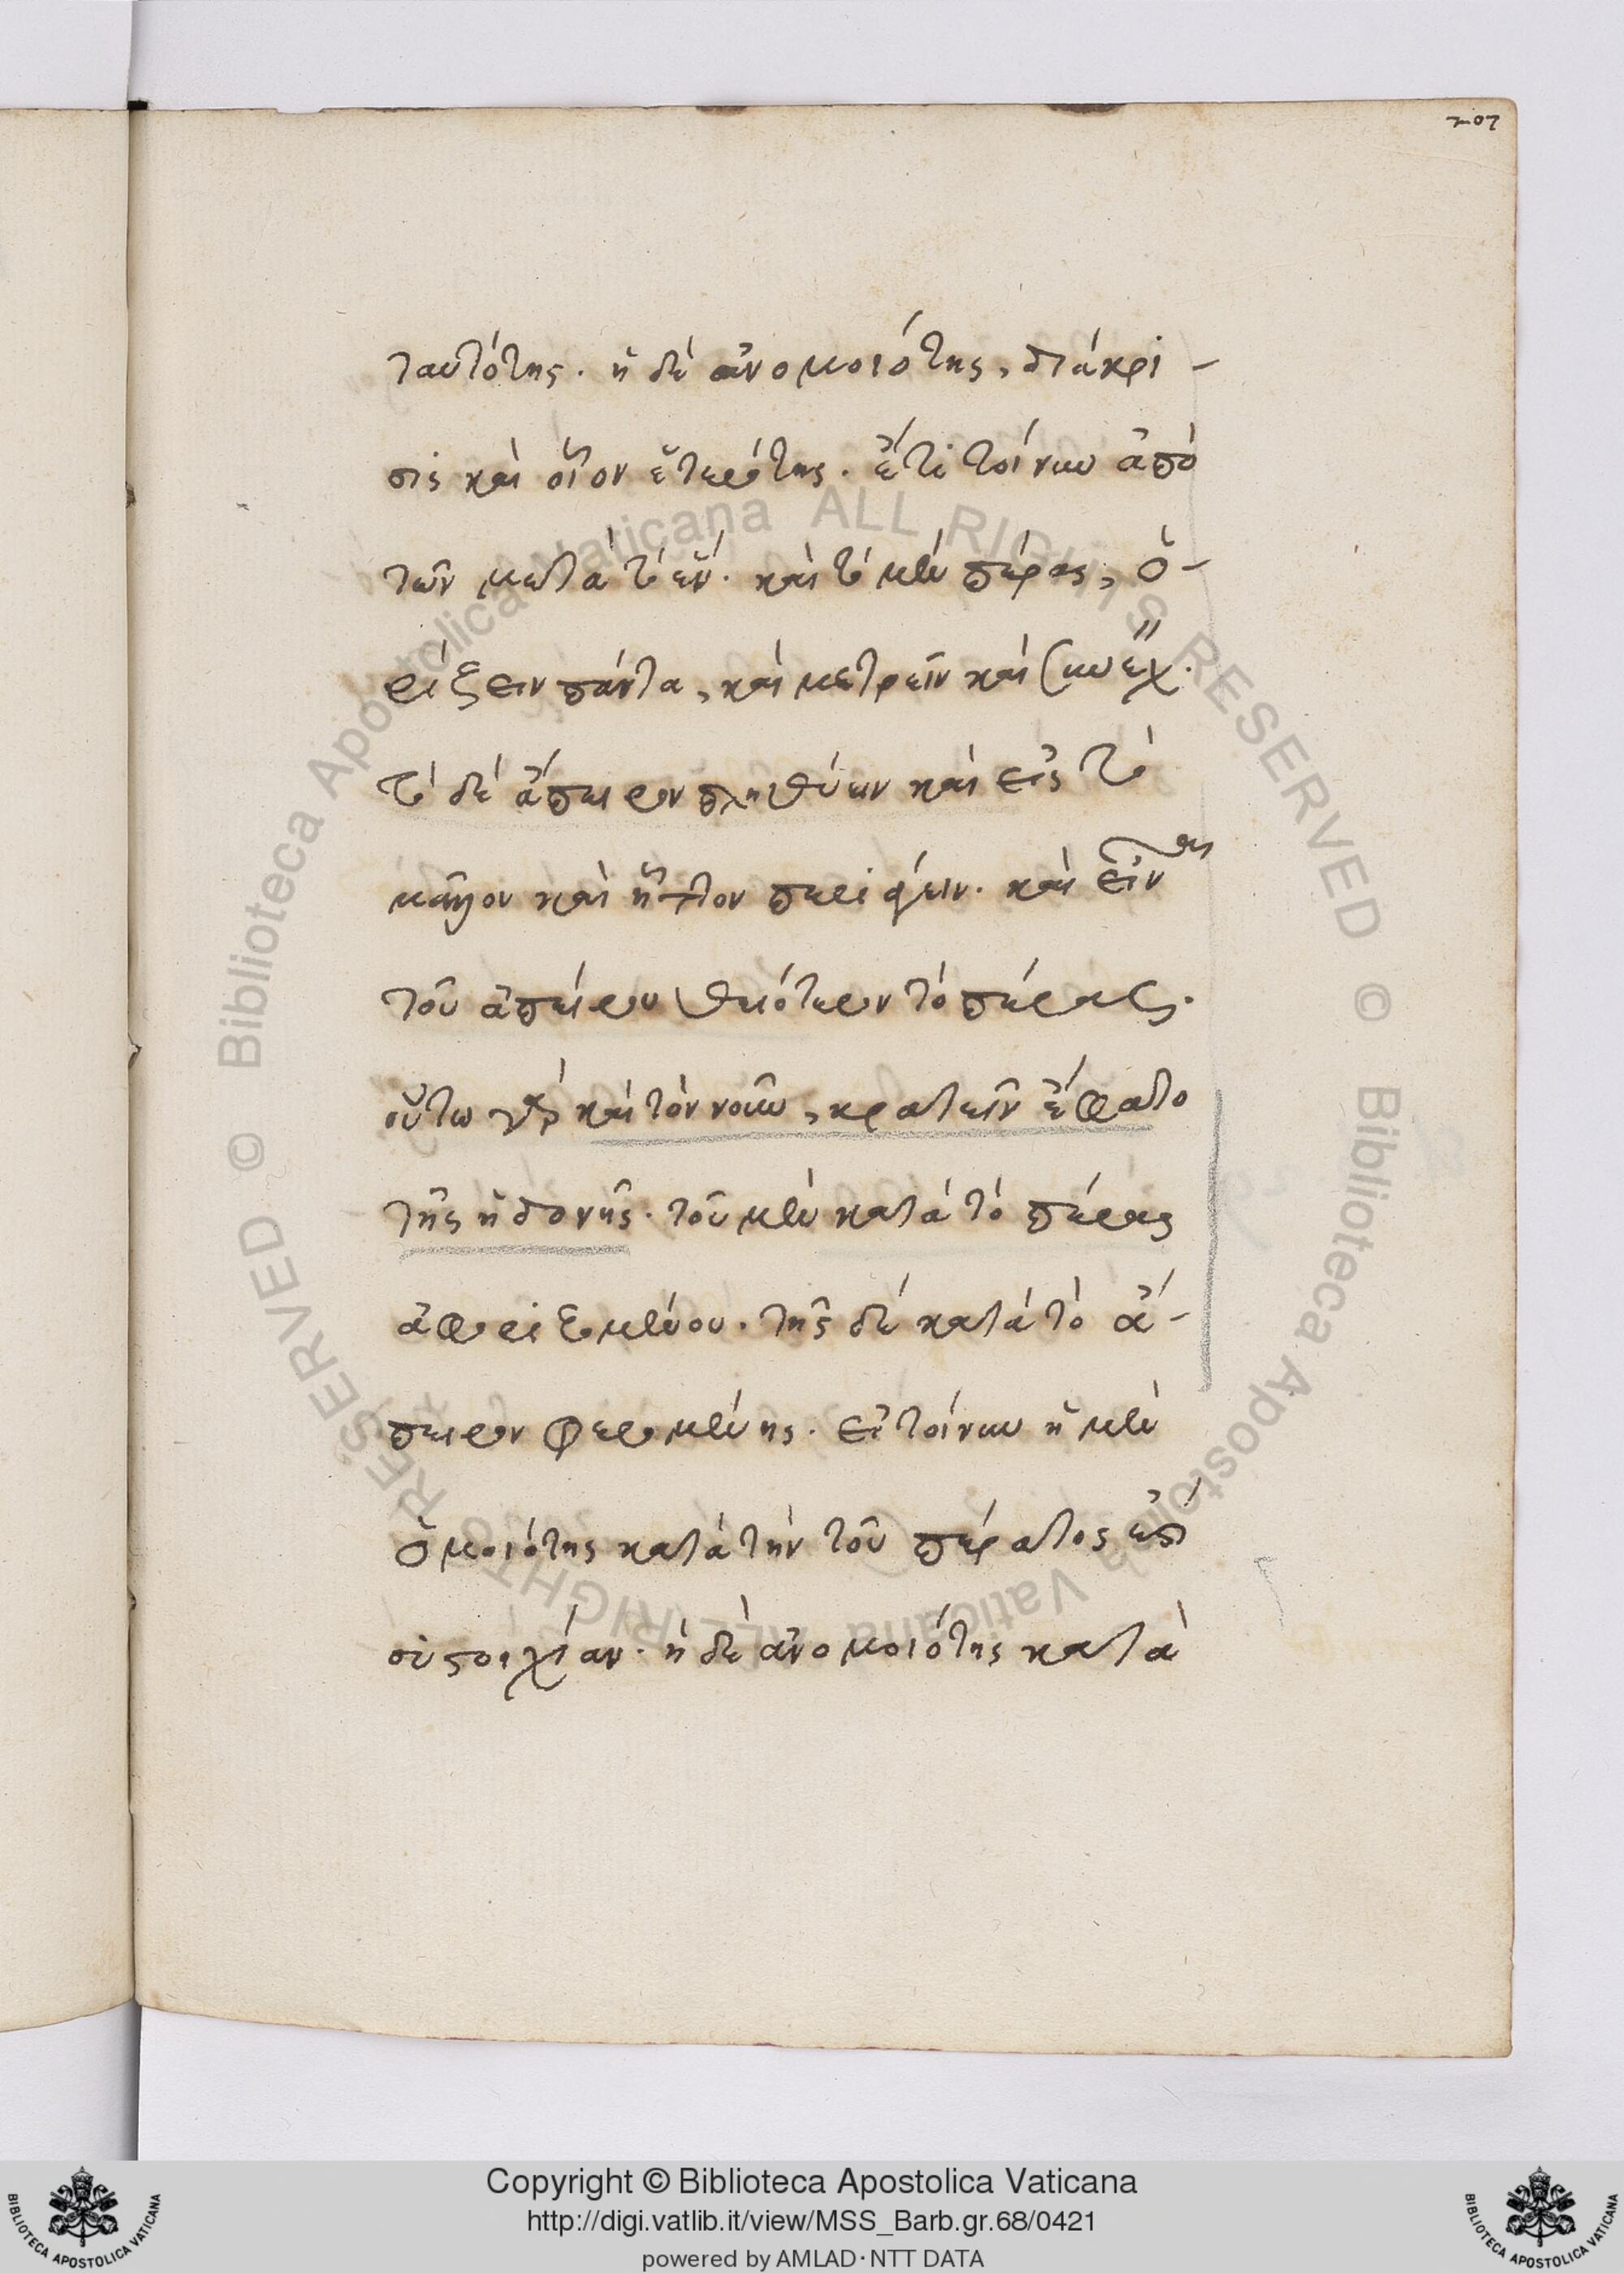 207
ταυτότης. ἡ δὲ ἀνομοιότης, διάκρι-
σις καὶ οἷον ἑτερότης. ἔτι τοίνυν ἀπὸ
τῶν μετὰ τὸ ἕν. καὶ τὸ μὲν πέρας, ὁ-
ρίζειν πάντα, καὶ μετρεῖν καὶ συνέχ.
τὸ δὲ ἄπειρον πληθύειν καὶ εἰς τὸ
μᾶλλον καὶ ἧττον περιφέρειν. καὶ εἶναι
τοῦ ἀπείρου θειότερον τὸ πέρας.
οὕτω γὰρ καὶ τὸν νοῦν, κρατεῖν ἔφατο
τῆς ἡδονῆς. τοῦ μὲν κατὰ τὸ πέρας
ἀφοριζομένου. τῆς δὲ κατὰ τὸ ἄ-
πειρον φερομένης. εἰ τοίνυν ἡ μὲν
ὁμοιότης κατὰ τὴν τοῦ πέρατος ἐστὶ
συστοιχίαν. ἡ δὲ ἀνομοιότης κατὰ
© Biblioteca Apostolica Vaticana ALL RIGHTS RESERVED
© Biblioteca Apostolica Vaticana ALL RIGHTS RESERVED
Copyright © Biblioteca Apostolica Vaticana
http://digi.vatlib.it/view/MSS_Barb.gr.68/0421
powered by AMLAD·NTT DATA
BIBLIOTECA APOSTOLICA VATICANA
BIBLIOTECA APOSTOLICA VATICANA